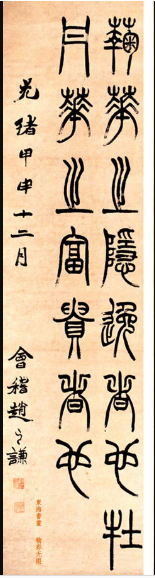 蘜華之隱逸者也牡
丹華之富貴者也
光緒甲申十二月 會稽趙之謙
東海書畫